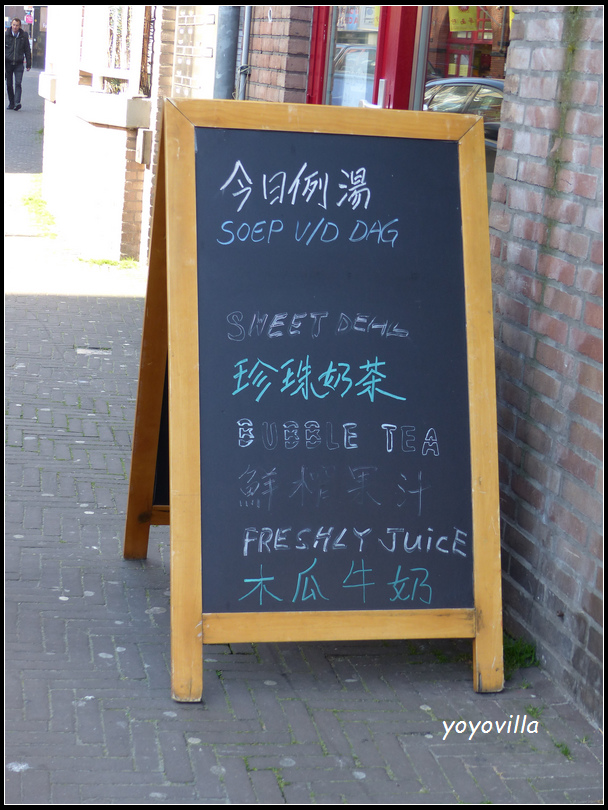 今日例湯
SOEP V/D DAG
SWEET DEAL
珍珠奶茶
BUBBLE TEA
鮮榨果汁
FRESHLY JUICE
木瓜牛奶
yoyovilla